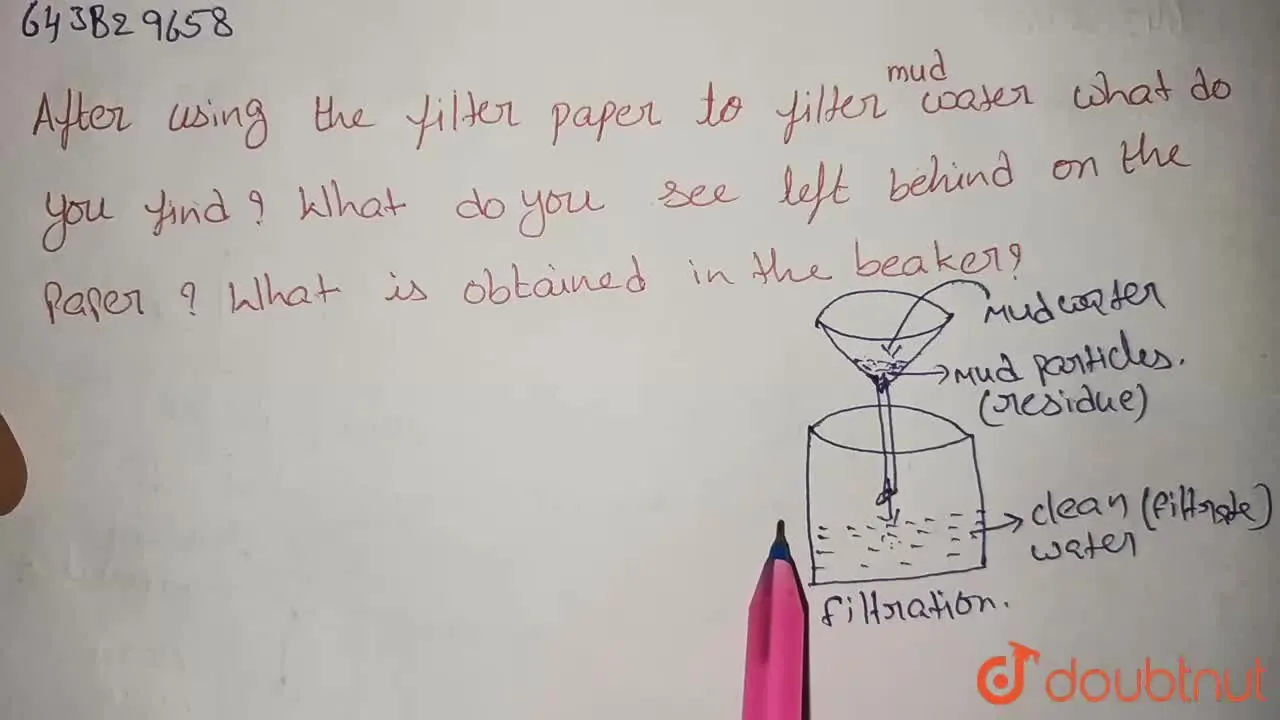 643829658
mud
After using the filter paper to filter water what do
you find? What do you see left behind on the
Paper? What is obtained in the beaker?
Mud water
Mud particles.
(residue)
clean (filtrate)
water
filtration.
doubtnut